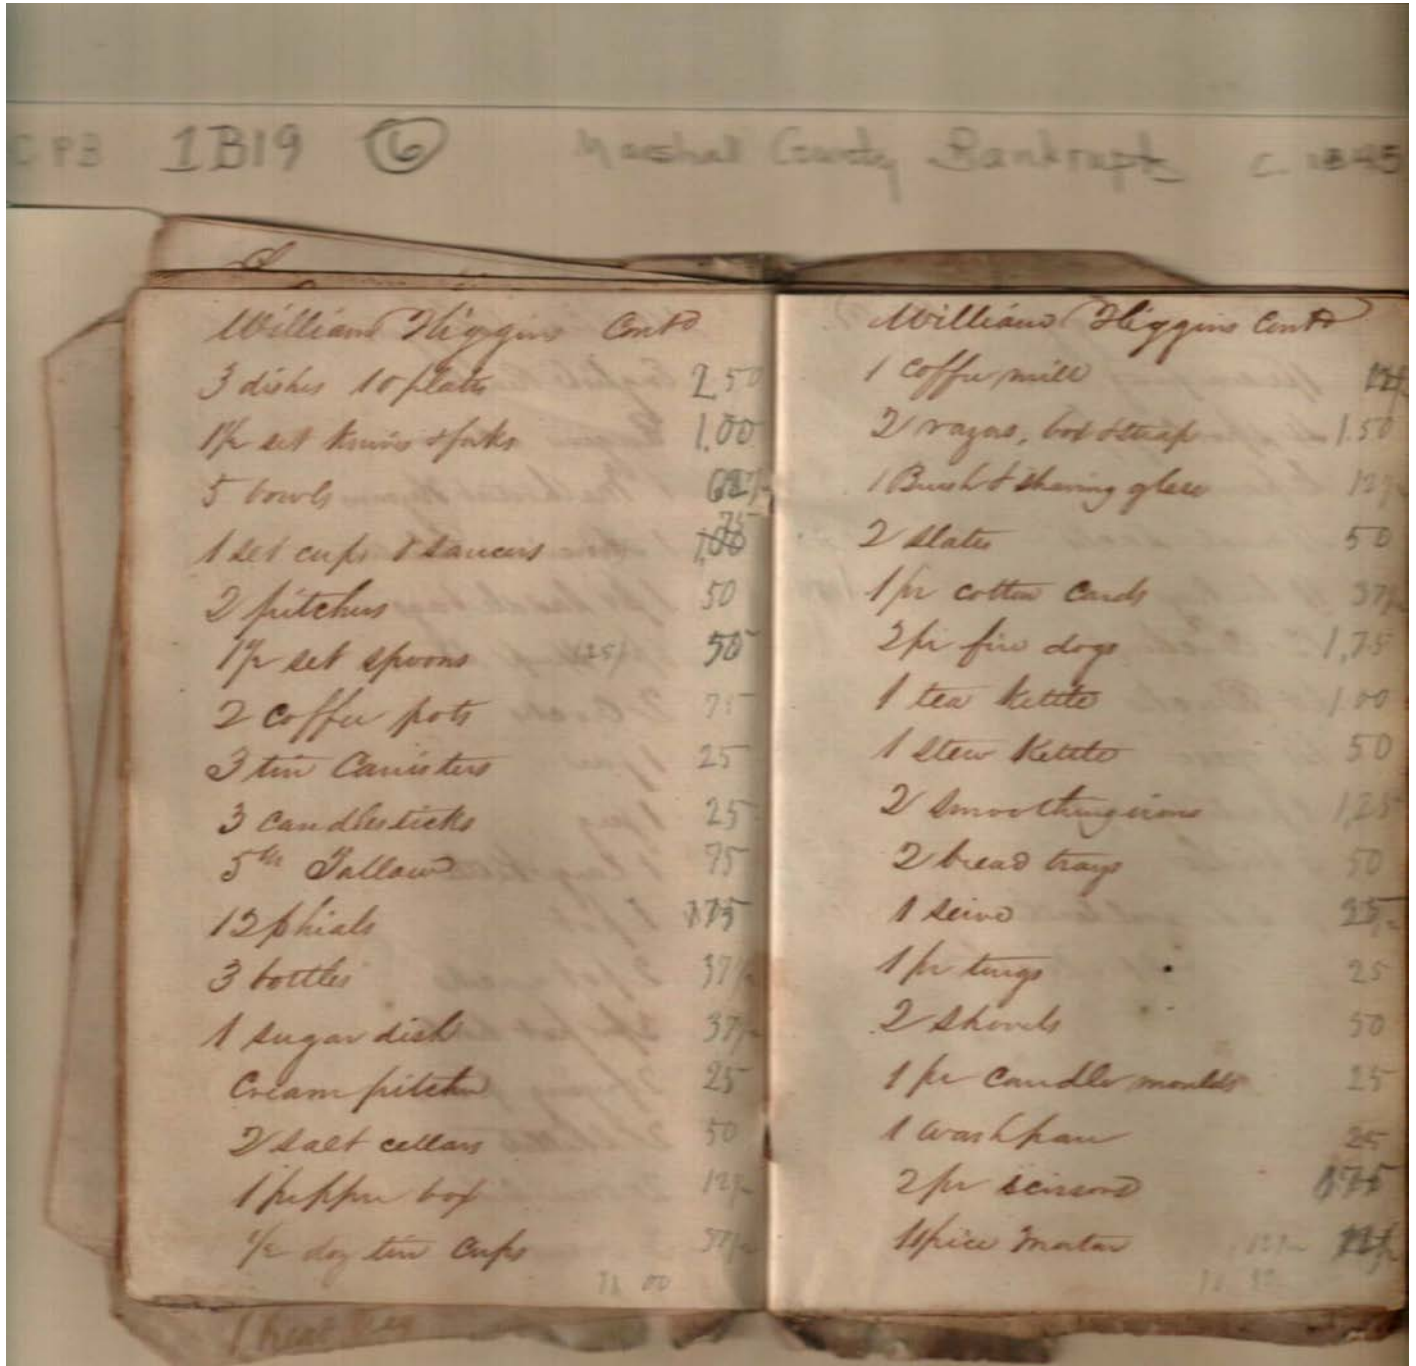 1B19 6 Marshal County Bankrupts C. 1845
William Higgins Contd
3 dishes 10 plates 2.50
1½ set knives & forks 1.00
5 bowls 62½
1 set cups & saucers 75
2 pitchers 50
1½ set spoons (25) 50
2 coffee pots 75
3 tin Canisters 25
3 candlesticks 25
5 Tallow 75
12 phials 75
3 bottles 37½
1 sugar dish 37½
Cream pitcher 25
2 salt cellars 50
1 pepper box 12½
½ doz tin Cups 37½
00
William Higgins Contd
1 coffee mill
2 razors, box & strap 1.50
1 Brush & shaving glass 12½
2 slates 50
1 pr cotton Cards 37½
2 pr fire dogs 1,75
1 tea Kettle 1.00
1 stew Kettle 50
2 smoothing irons 1,25
2 bread trays 50
1 seive 25
1 pr tongs 25
2 shovels 50
1 pr candle moulds 25
1 wash pan 25
2 pr scissors
1 spice Mortar 12½